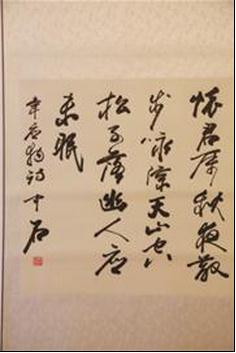 懷君属秋夜散
步咏涼天山空
松子落幽人应
未眠
韋应物诗 中石